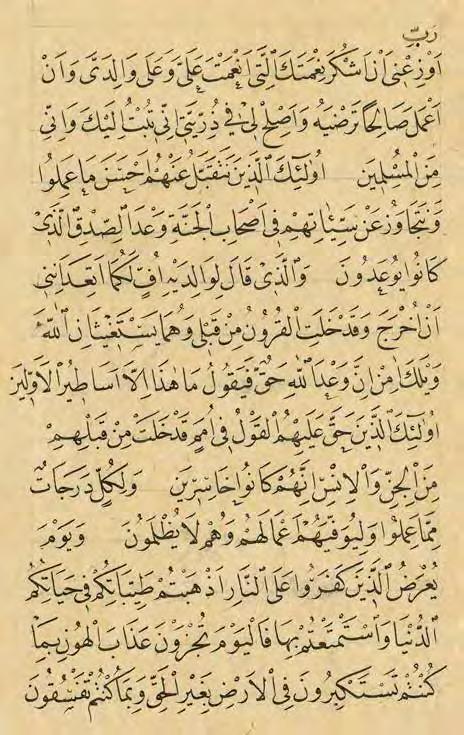 رَبِّ
اَوْزِعْنِى اَنْ اَشْكُرَ نِعْمَتَكَ الَّتِى اَنْعَمْتَ عَلَىَّ وَعَلٰى وَالِدَىَّ وَاَنْ
اَعْمَلَ صَالِحًا تَرْضٰيهُ وَاَصْلِحْ لِى فِى ذُرِّيَّتِى اِنِّى تُبْتُ اِلَيْكَ وَاِنِّى
مِنَ الْمُسْلِمِينَ اُولٰئِكَ الَّذِينَ نَتَقَبَّلُ عَنْهُمْ اَحْسَنَ مَا عَمِلُوا
وَنَتَجَاوَزُ عَنْ سَيِّئَاتِهِمْ فِى اَصْحَابِ الْجَنَّةِ وَعْدَ الصِّدْقِ الَّذِى
كَانُوا يُوعَدُونَ وَالَّذِى قَالَ لِوَالِدَيْهِ اُفٍّ لَكُمَا اَتَعِدَانِنِى
اَنْ اُخْرَجَ وَقَدْ خَلَتِ الْقُرُونُ مِنْ قَبْلِى وَهُمَا يَسْتَغِيثَانِ اللّٰهَ
وَيْلَكَ اٰمِنْ اِنَّ وَعْدَ اللّٰهِ حَقٌّ فَيَقُولُ مَا هٰذَا اِلَّا اَسَاطِيرُ الْاَوَّلِينَ
اُولٰئِكَ الَّذِينَ حَقَّ عَلَيْهِمُ الْقَوْلُ فِى اُمَمٍ قَدْ خَلَتْ مِنْ قَبْلِهِمْ
مِنَ الْجِنِّ وَالْاِنْسِ اِنَّهُمْ كَانُوا خَاسِرِينَ وَلِكُلٍّ دَرَجَاتٌ
مِمَّا عَمِلُوا وَلِيُوَفِّيَهُمْ اَعْمَالَهُمْ وَهُمْ لَا يُظْلَمُونَ وَيَوْمَ
يُعْرَضُ الَّذِينَ كَفَرُوا عَلَى النَّارِ اَذْهَبْتُمْ طَيِّبَاتِكُمْ فِى حَيَاتِكُمُ
الدُّنْيَا وَاسْتَمْتَعْتُمْ بِهَا فَالْيَوْمَ تُجْزَوْنَ عَذَابَ الْهُونِ بِمَا
كُنْتُمْ تَسْتَكْبِرُونَ فِى الْاَرْضِ بِغَيْرِ الْحَقِّ وَبِمَا كُنْتُمْ تَفْسُقُونَ